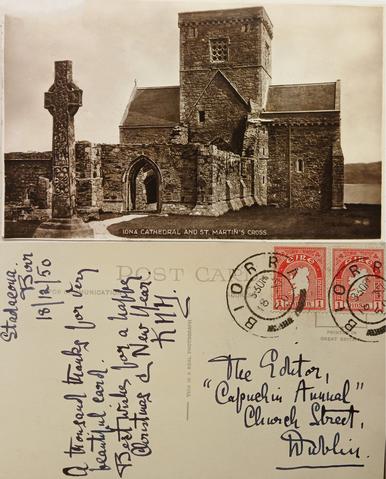 IONA CATHEDRAL AND ST. MARTIN'S CROSS.
POST CARD
Stadacona.
Birr
18/12/50
A thousand thanks for very
beautiful card.
Best wishes for a happy
Christmas & New Year
THIS IS A REAL PHOTOGRAPH
BIORRA
5 30PM
BIORRA
5 30PM
The Editor,
"Capuchin Annual"
Church Street,
Dublin.